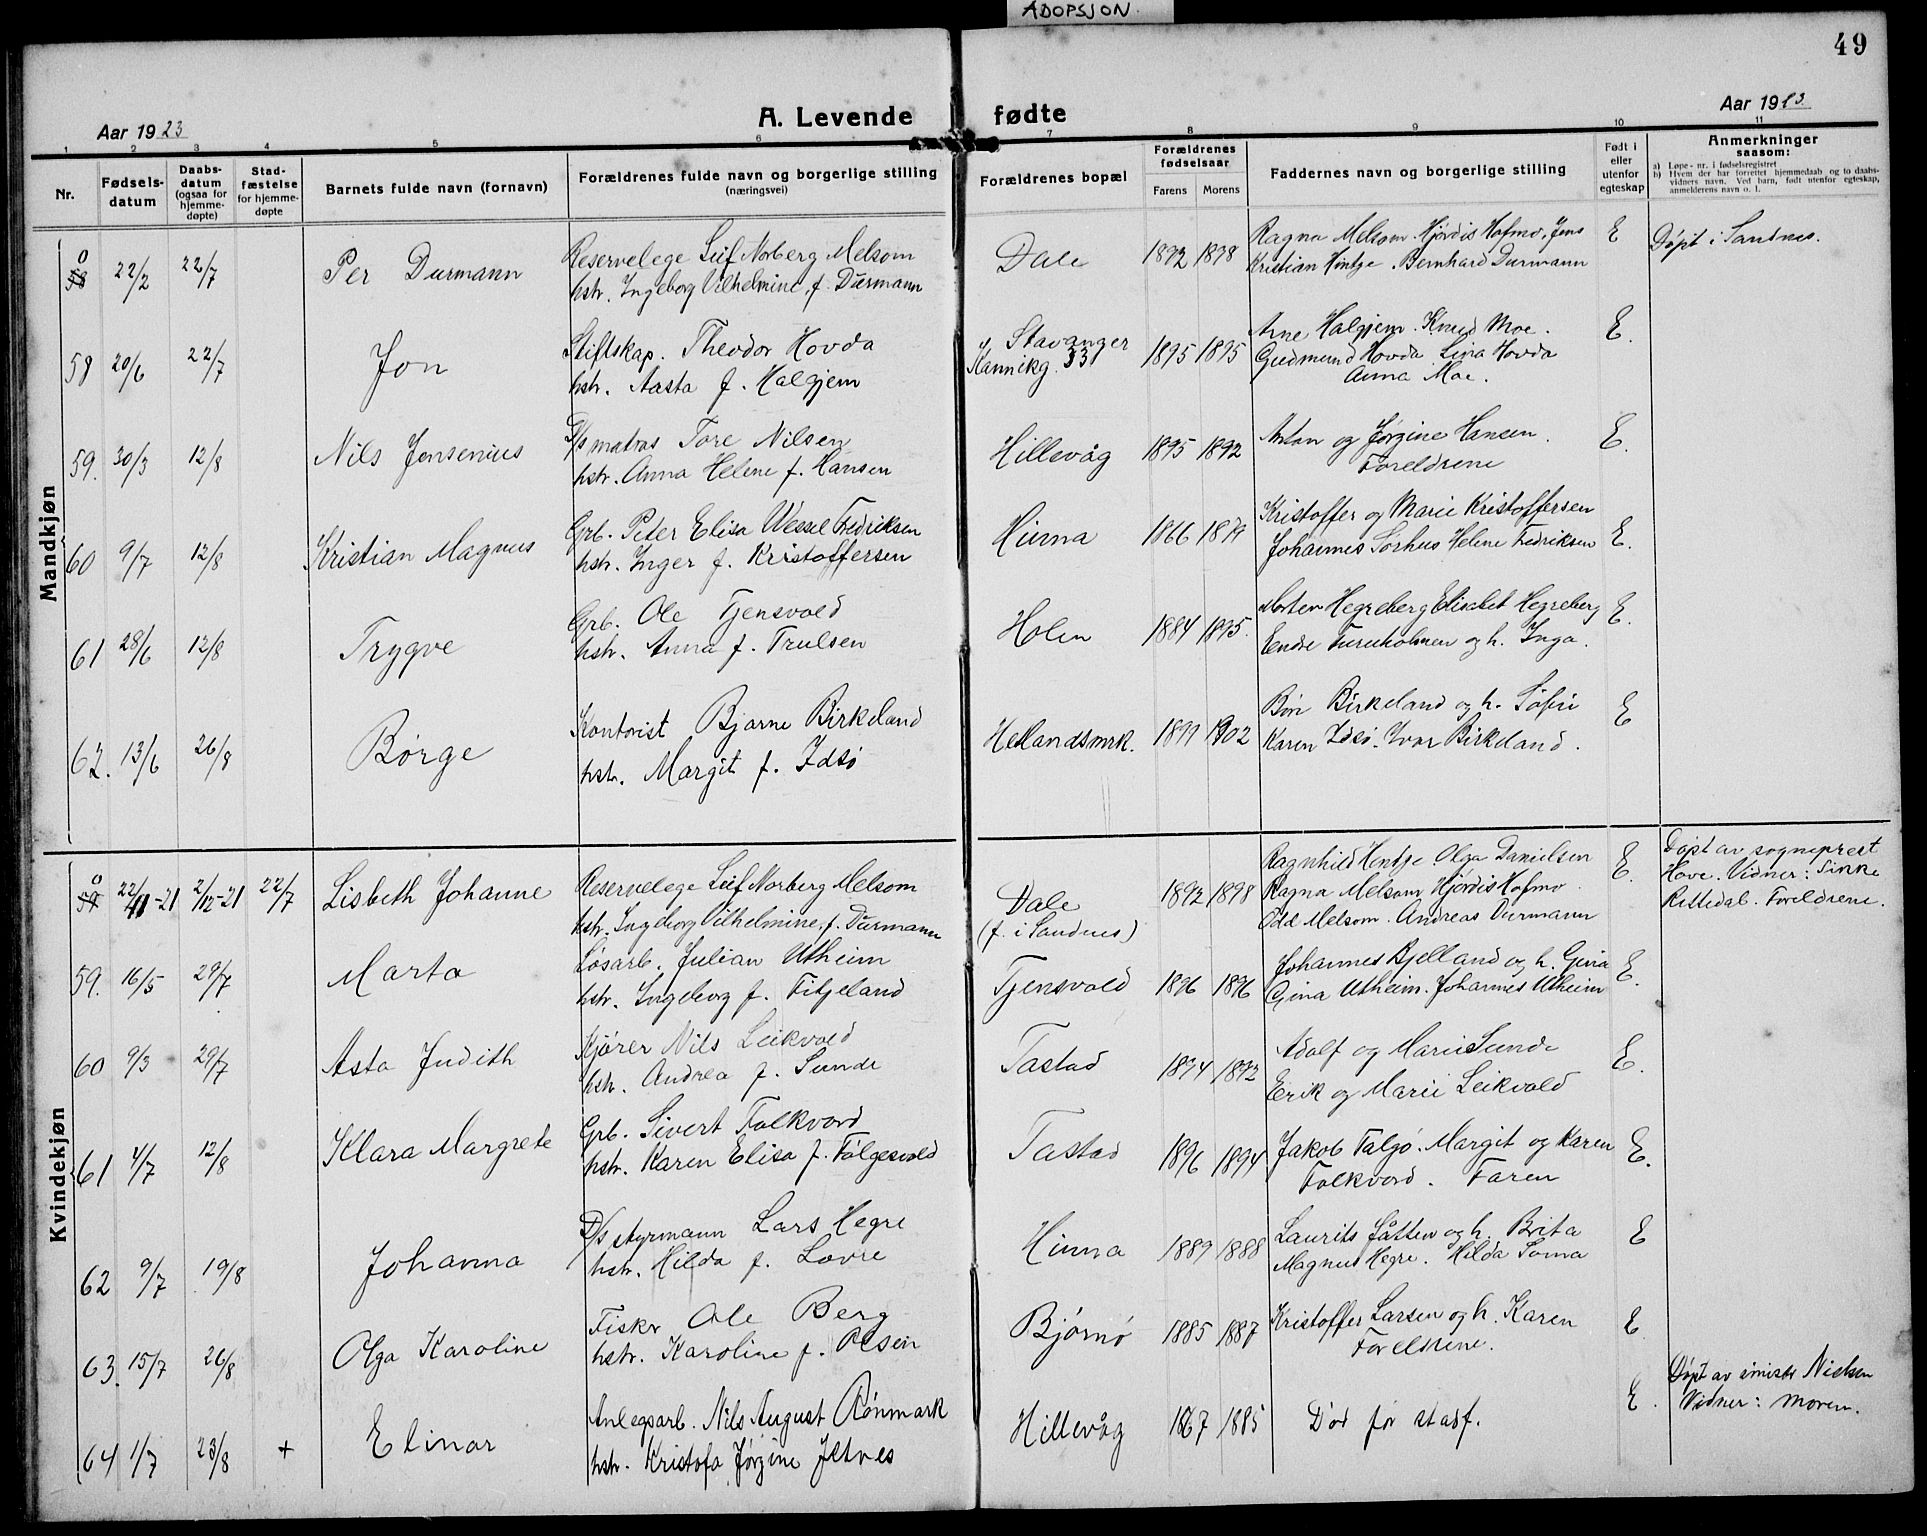 ADOPSJON.
49
Aar 1923
A. Levende fødte
Aar 1923
1 2 3 4 5 6 7 8 9 10 11
Nr.
Fødsels-
datum
Daabs-
datum
(ogsaa for
hjemme-
døpte)
Stad-
fæstelse
for hjemme-
døpte
Barnets fulde navn (fornavn)
Forældrenes fulde navn og borgerlige stilling
(næringsvei)
Forældrenes bopæl
Forældrenes
fødselsaar
Farens Morens
Faddernes navn og borgerlige stilling
Født i
eller
utenfor
egteskap
Anmerkninger
saasom:
a) Løpe-nr. i fødselsregistret
b) Hvem der har forrettet hjemmedaab og to daabs-
vidners navn. Ved barn, født utenfor egteskap,
anmelderens navn o. l.
Mandkjøn
0
58 22/2 22/7 Per Durmann
Reservelege Leif Norberg Melsom
hstr. Ingeborg Vilhelmine, f. Durmann
Dale 1892 1898
Ragna Melsom. Hjördis Hofmo, Jens
Kristian Hintze. Bernhard Durmann
E Döpt i Sandnes.
58 20/6 22/7 Jon
Stiftskap. Theodor Hovda
hstr. Aasta f. Halgjem
Stavanger
Kannikg. 33 1895 1895
Arne Halgjem. Knud Moe.
Gudmund Hovda Lina Hovda
Anna Moe.
E.
59. 30/3 12/8 Nils Jensenius
D/s matros Tore Nilsen
hstr. Anna Helene f. Hansen
Hillevåg 1895 1892
Anton og Jörgine Hansen.
Foreldrene
E.
60 9/7 12/8 Kristian Magnus
Grb. Peter Elisa Wessel Fredriksen
hstr. Inger f. Kristoffersen
Hinna 1866 1879
Kristoffer og Marie Kristoffersen
Johannes Sörhus Helene Fredriksen
E.
61 28/6 12/8 Trygve
Grb. Ole Tjensvold
hstr. Anna f. Trulsen
Holen 1884 1895.
Morten Hegreberg Elisabet Hegreberg
Endre Furuholmen og h. Inga.
E.
62. 13/6 26/8 Börge
Kontorist Bjarne Birkeland
hstr. Margit f. Idsö
Hetlandsmrk. 1899 1902
Birkeland og h. Söfni
Karen Idsö. Ivar Birkeland.
E
Kvindekjøn
0
59 22/11-21 2/12-21 22/7 Lisbeth Johanne
Reservelege Leif Norberg Melsom
hstr. Ingeborg Vilhelmine, f. Durmann
Dale
(f. i Sandnes)
1892 1898
Ragnhild Hintze Olga Danielsen
Ragna Melsom Hjördis Hofmo.
Odd Melsom. Andreas Durmann
E.
Döpt av sogneprest
Hove. Vidner: Sikke
Rettedal. Foreldrene.
59. 16/5 29/7 Marta
Lösarb. Julian Utheim
hstr. Ingeborg f. Fitjeland
Tjensvold 1896 1896
Johannes Bjelland og h. Gina
Gina Utheim. Johannes Utheim
E.
60 9/3 29/7 Asta Judith
Kjörer Nils Leikvold
hstr. Andrea f. Sunde
Tastad 1894 1892
Adolf og Marie Sunde
Erik og Marie Leikvold
E.
61 4/7 12/8 Klara Margrete
Grb. Sivert Folkvord
hstr. Karen Elisa f. Fölgesvold
Tastad 1896 1894
Jakob Talgö. Margit og Karen
Folkvord. Faren
E.
62 9/7 19/8 Johanna
D/s styrmann Lars Hegre
hstr. Hilda f. Lovre
Hinna 1889 1888
Laurits Jåtten og h. Brita
Magnus Hegre. Hilda Soma
E
63. 15/7 26/8 Olga Karoline
Fisker Ole Berg
hstr. Karoline f. Olsen
Bjørnö 1885 1887
Kristoffer Larsen og h. Karen
Foreldrene.
E
64 1/7 23/8 + Elinor
Anlegsarb. Nils August Rönmark
hstr. Kristofa Jörgine
Hillevåg 1867 1885
Död för stadf.
E.
Döpt av Nielsen
Vidner: moren.